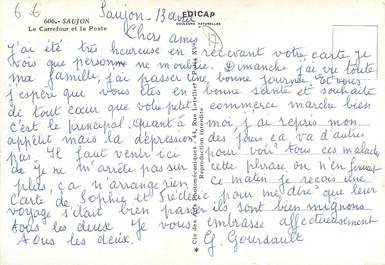 6 6
606.- SAUJON
Le Carrefour et la Poste
EDICAP
COULEURS NATURELLES
Saujon - 13 avril
Chers amis
J'ai été très heureuse en recevant votre carte je
vois que personne ne m'oublie. Dimanche j'ai vu toute
ma famille, j'ai passer une bonne journée. Et vous
j'espère que vous êtes en bonne santé et souhaite
de tout cœur que votre petit commerce marche bien
c'est le principal. Quant à moi, j'ai repris mon
appétit mais la dépression des jours ça va d'autres
pas. Il faut venir ici pour voir tous ces malades
de je ne m'arrête pas sur cette phrase on n'en finirait
plus, ça n'arrange rien. ce matin je reçois une
Carte de Sophie et Frédéric pour me dire que leur
voyage s'était bien passer ils sont bien mignons
tous les deux. Je vous embrasse affectueusement
tous les deux.
G. Goursault
Cie des Arts Photomécaniques - 44, Rue Letellier - Paris XVe
Reproduction interdite